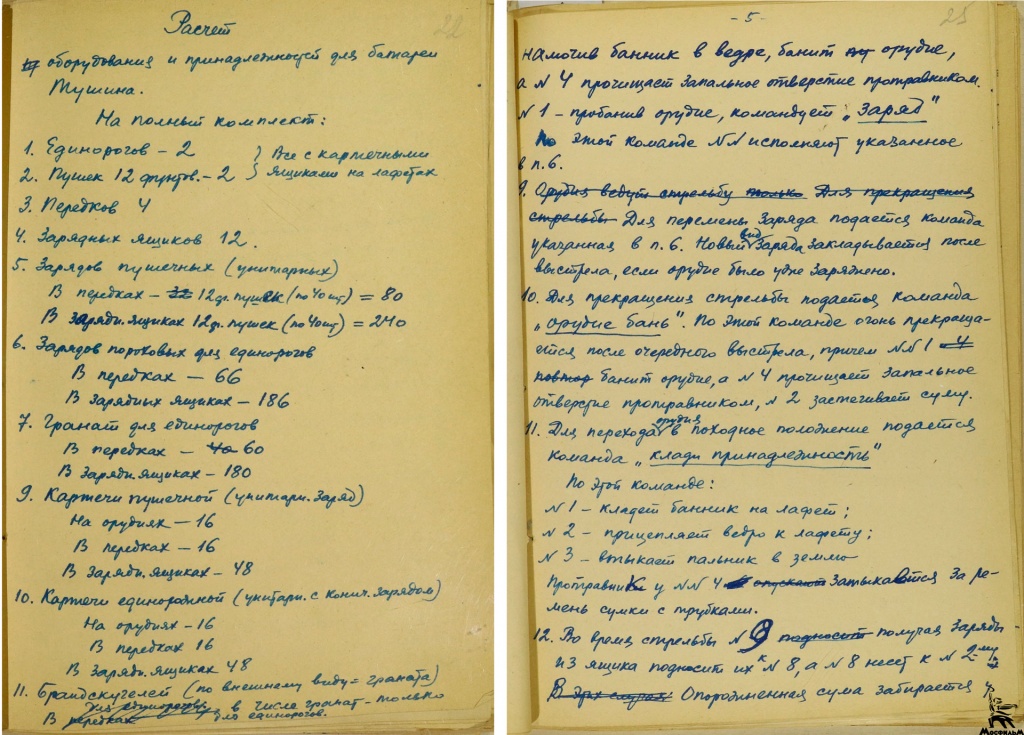 22
Расчет
оборудования и принадлежностей для батареи
Тушина.
На полный комплект:
1. Единорогов – 2 } Все с картечными
2. Пушек 12 фунтов. – 2 } ящиками на лафетах
3. Передков 4
4. Зарядных ящиков 12.
5. Зарядов пушечных (унитарных)
В передках – 32 12 др. пушек (по 40 шт) = 80
В зарядн. ящиках 12 др. пушек (по 40 шт) = 240
6. Зарядов пороховых для единорогов
В передках – 66
В зарядных ящиках – 186
7. Гранат для единорогов
В передках – 40 60
В зарядн. ящиках – 180
9. Картечи пушечной (унитарн. заряд)
На орудиях – 16
В передках – 16
В зарядн. ящиках – 48
10. Картечи единорожной (унитарн. с конич. зарядом)
На орудиях – 16
В передках 16
В зарядн. ящиках 48
11. Брандскугелей (по внешнему виду = граната)
В передках в числе гранат – только
для единорогов.
25
- 5 -
намочив банник в ведре, банит орудие,
а № 4 прочищает запальное отверстие протравником.
№ 1 – пробанив орудие, командует „Заряд"
По этой команде №№ исполняют указанное
в п. 6.
9. Орудия ведут стрельбу только Для прекращения
стрельбы Для перемены заряда подается команда
указанная в п. 6. Новый вид заряда закладывается после
выстрела, если орудие было уже заряжено.
10. Для прекращения стрельбы подается команда
„орудие бань". По этой команде огонь прекраща-
ется после очередного выстрела, причем №№ 1 – 4
повтор банит орудие, а № 4 прочищает запальное
отверстие протравником, № 2 застегивает суму.
11. Для перехода орудия в походное положение подается
команда „клади принадлежность"
По этой команде:
№ 1 – кладет банник на лафет;
№ 2 – прицепляет ведро к лафету;
№ 3 – втыкает пальник в землю
Протравник у №№ 4 опускают затыкается за ре-
мень сумки с трубками.
12. Во время стрельбы № 9 подносит получая заряды
из ящика подносит их к № 8, а № 8 несет к № 2-му
В эту Опорожненная сума забирается и
Мосфильм